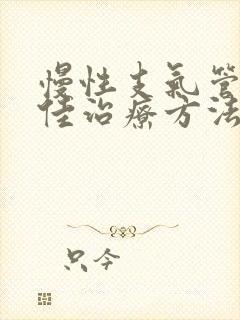 慢性支氣管
佳治療方法
只今